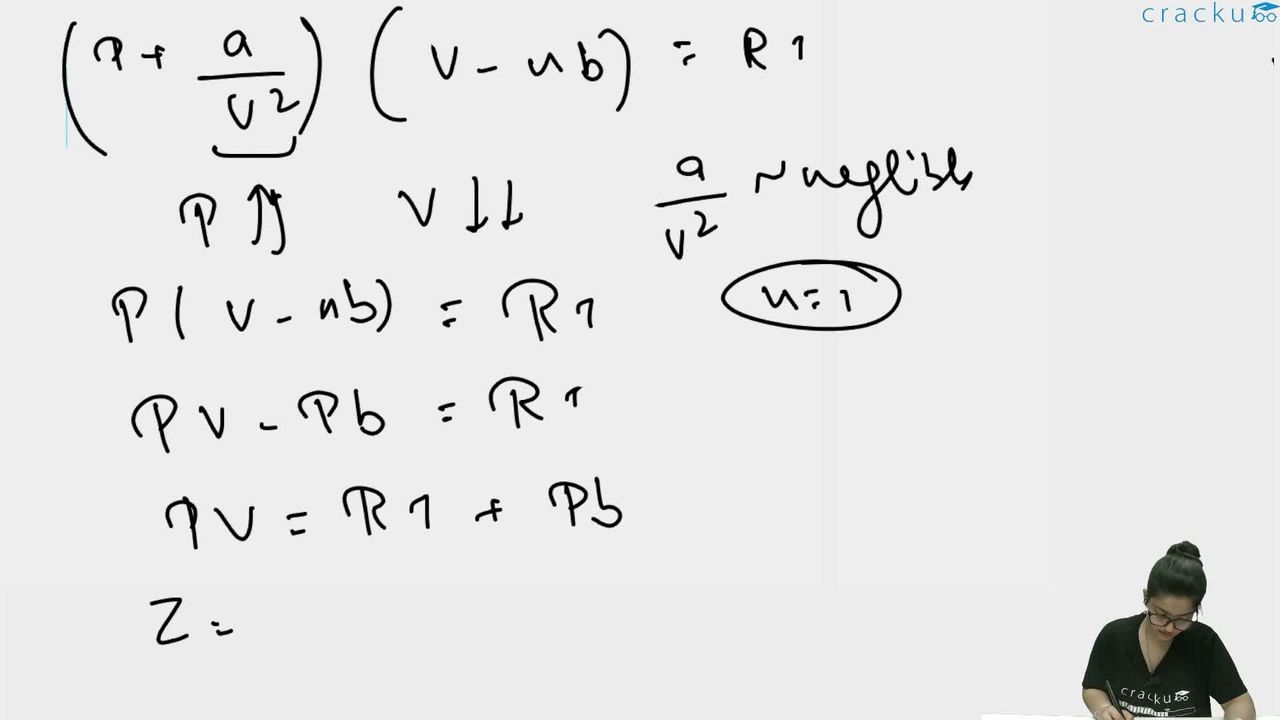 cracku
(P + a/V²) (V - nb) = RT
P ↑↑ V ↓↓ a/V² ~ neglible
P(V - nb) = RT
n = 1
PV - Pb = RT
PV = RT + Pb
Z =
cracku